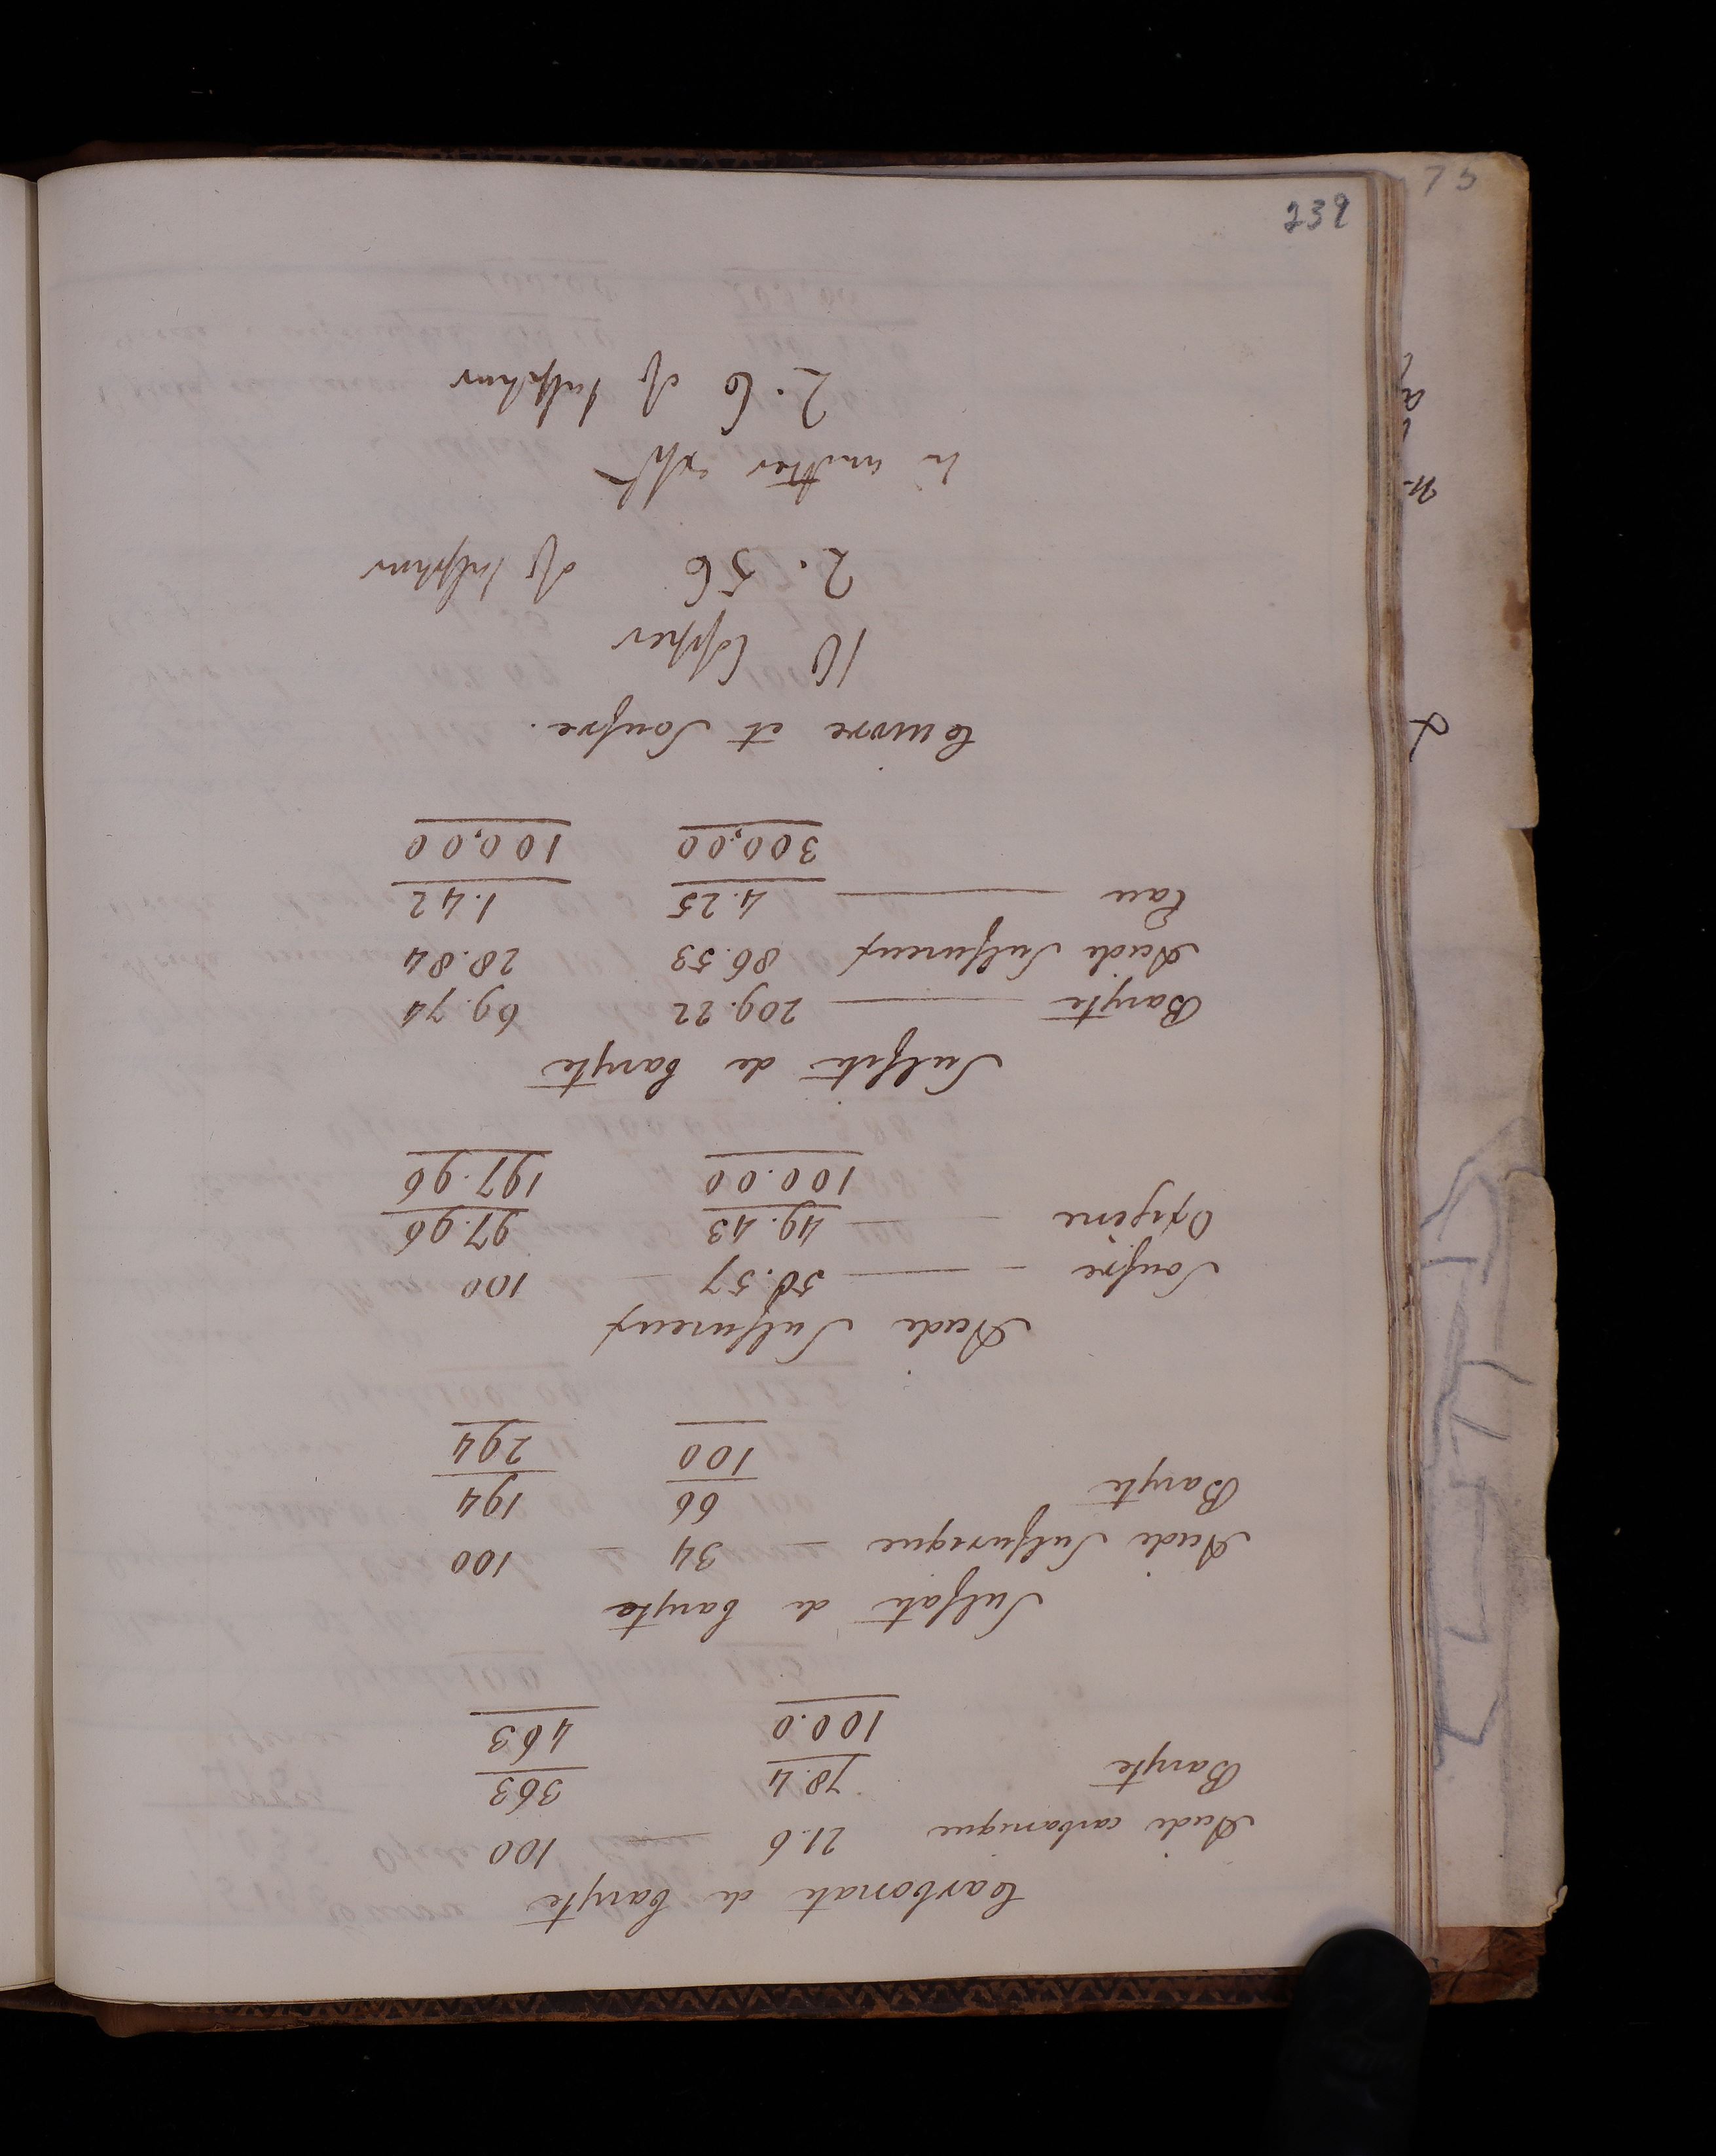 Carbonate de baryte
Acide carbonique 21.6 — 100
Baryte 78.4 363
100.0 463
Sulfate de baryte
Acide Sulfurique — 34 — 100
Baryte 66 194
100 294
Acide Sulfureux
Soufre — 50.57 — 100
Oxigène — 49.43 97.96
100.00 197.96
Sulfite de baryte
Baryte — 209.22 69.74
Acide Sulfureux 86.53 28.84
Eau — 4.25 1.42
300,00 100,00
Cuivre et Soufre.
10 Copper
2.56 of Sulphur
In another expt
2.6 of Sulphur
239
75